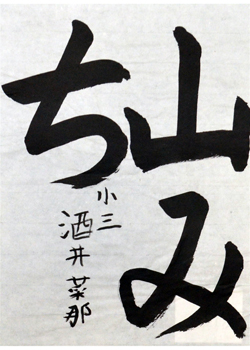 山み
ち
小三
酒井菜那